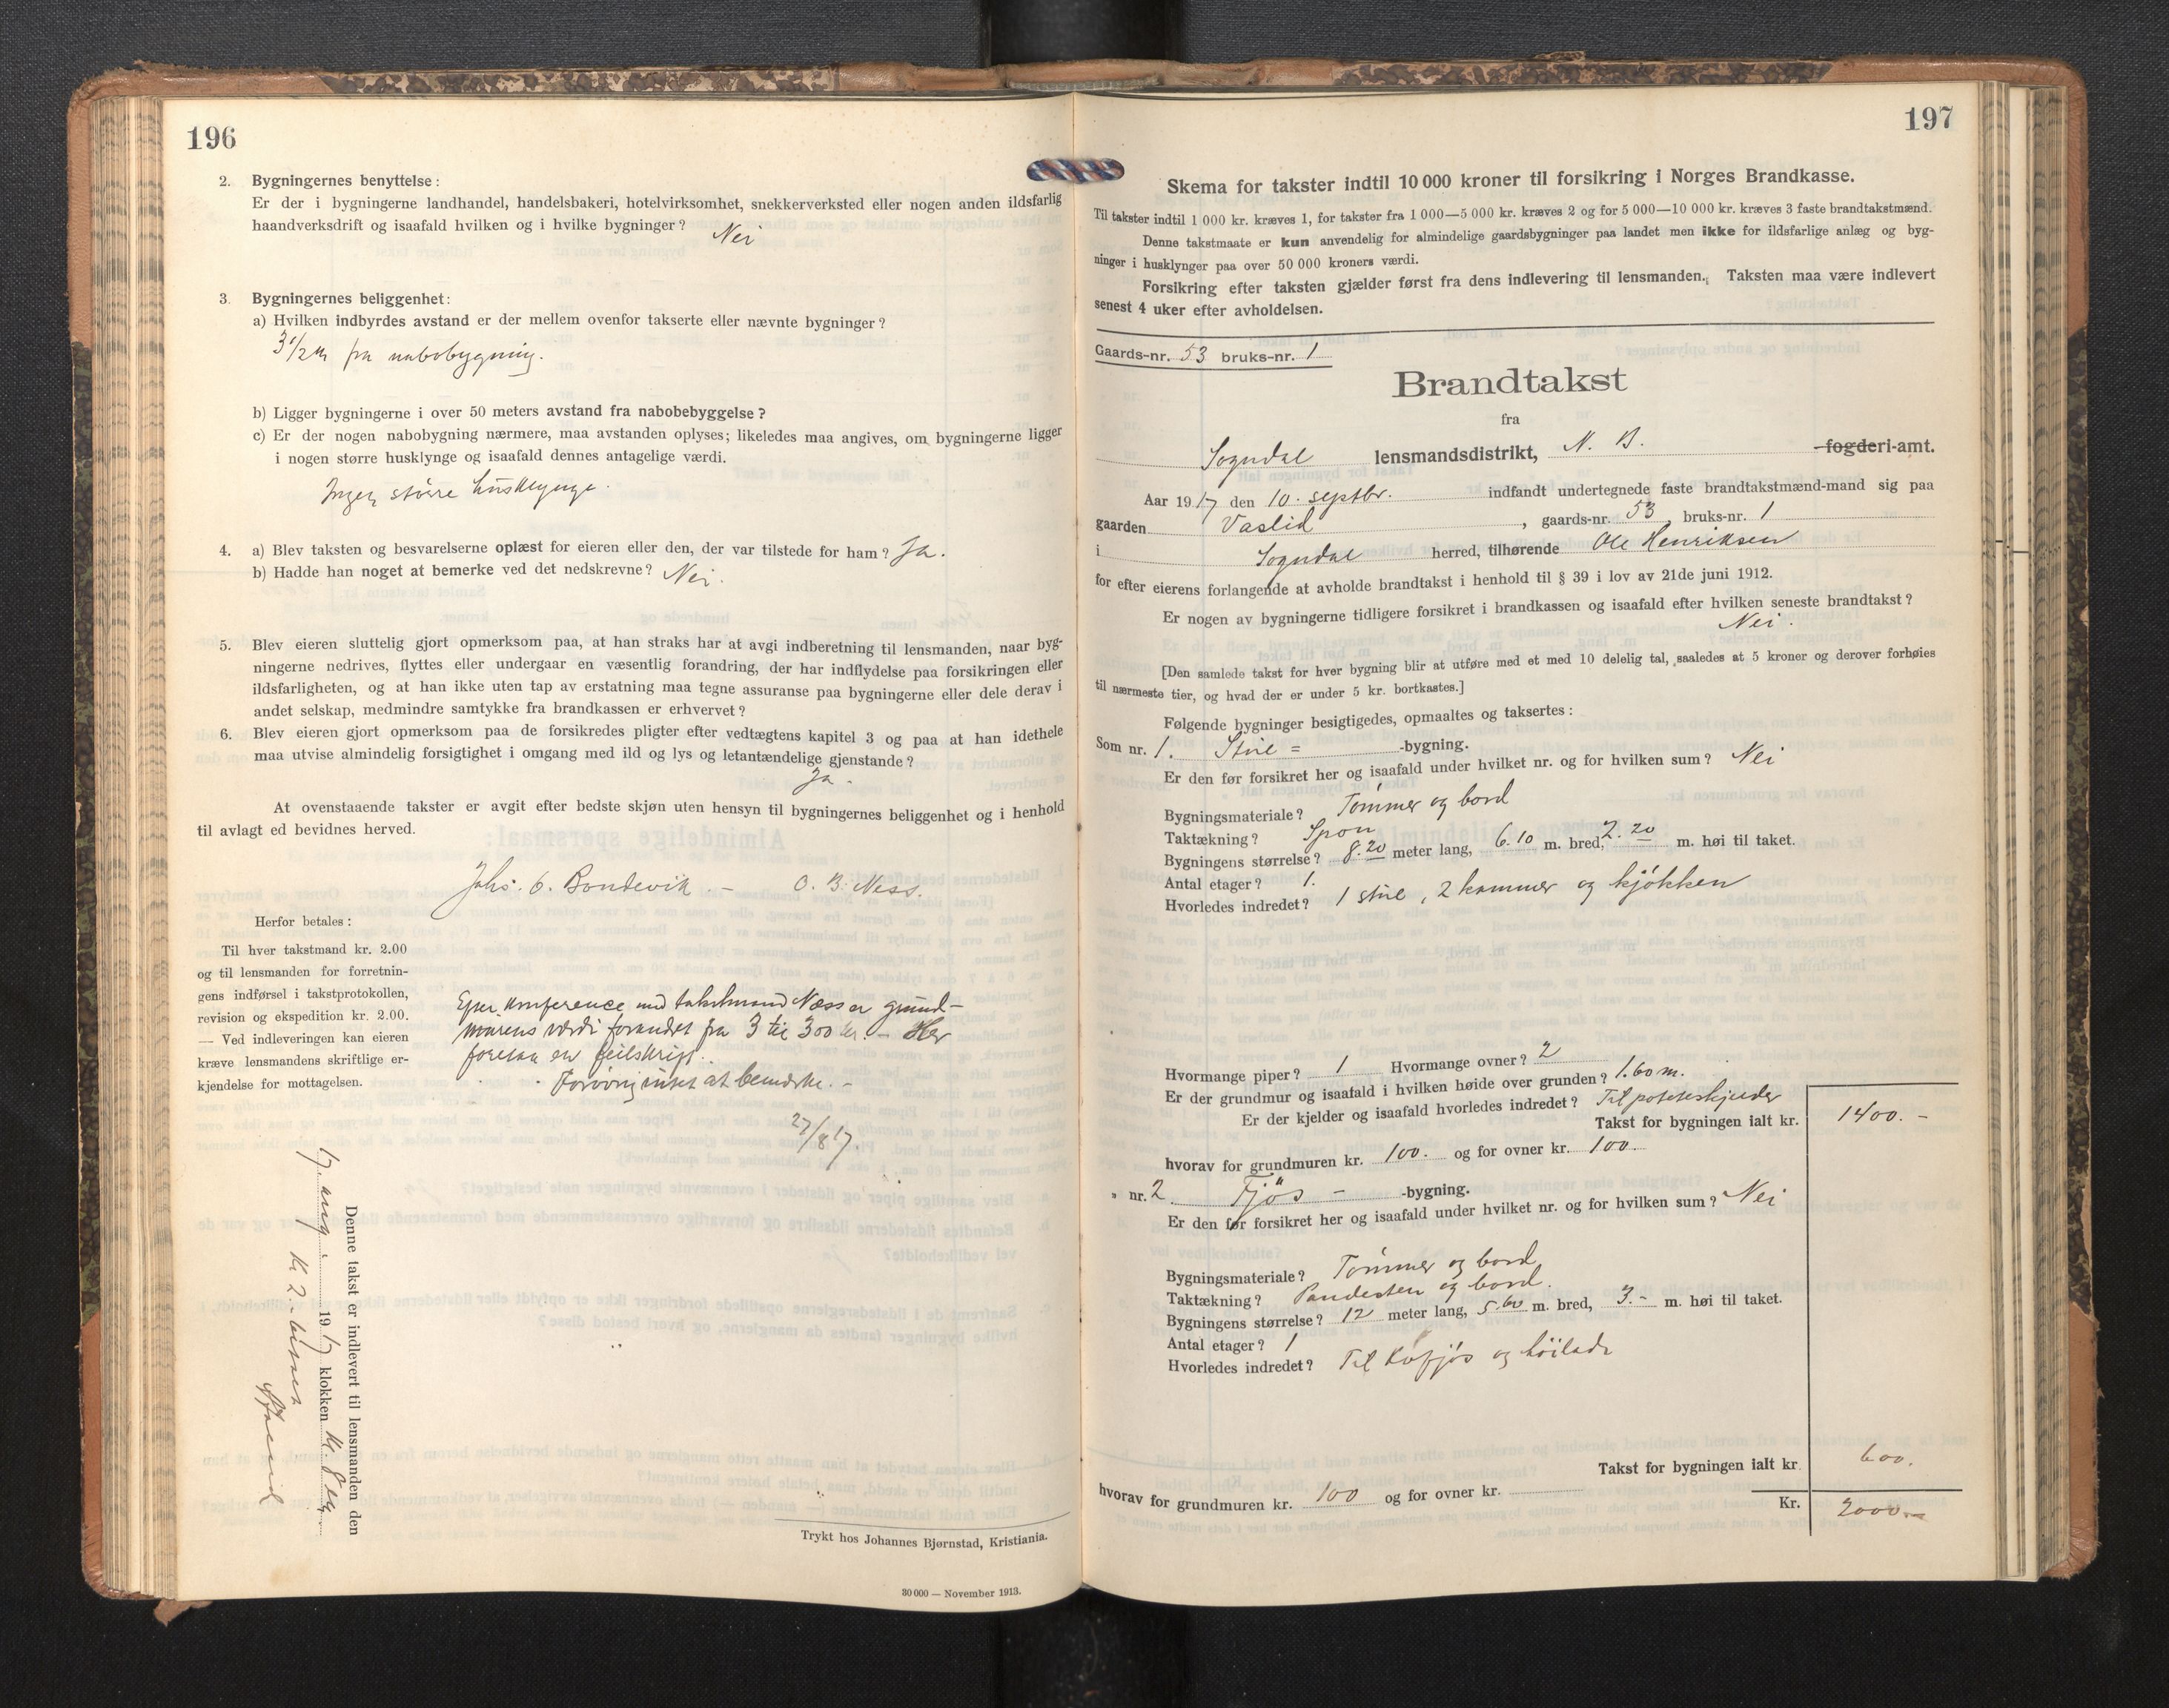 196
2. Bygningernes benyttelse:
Er der i bygningerne landhandel, handelsbakeri, hotelvirksomhet, snekkerverksted eller nogen anden ildsfarlig
haandverksdrift og isaafald hvilken og i hvilke bygninger? Nei
3. Bygningernes beliggenhet:
a) Hvilken indbyrdes avstand er der mellem ovenfor takserte eller nævnte bygninger?
3 1/2 m fra nabobygning.
b) Ligger bygningerne i over 50 meters avstand fra nabobebyggelse?
c) Er der nogen nabobygning nærmere, maa avstanden oplyses; likeledes maa angives, om bygningerne ligger
i nogen større husklynge og isaafald dennes antagelige værdi.
Ingen större husklynge.
4. a) Blev taksten og besvarelserne oplæst for eieren eller den, der var tilstede for ham? Ja.
b) Hadde han noget at bemerke ved det nedskrevne? Nei.
5. Blev eieren sluttelig gjort opmerksom paa, at han straks har at avgi indberetning til lensmanden, naar byg-
ningerne nedrives, flyttes eller undergaar en væsentlig forandring, der har indflydelse paa forsikringen eller
ildsfarligheten, og at han ikke uten tap av erstatning maa tegne assuranse paa bygningerne eller dele derav i
andet selskap, medmindre samtykke fra brandkassen er erhvervet?
6. Blev eieren gjort opmerksom paa de forsikredes pligter efter vedtægtens kapitel 3 og paa at han idethele
maa utvise almindelig forsigtighet i omgang med ild og lys og letantændelige gjenstande?
Ja.
At ovenstaaende takster er avgit efter bedste skjøn uten hensyn til bygningernes beliggenhet og i henhold
til avlagt ed bevidnes herved.
Johs. 6. Bondevik. — O. B. Ness.
Herfor betales:
Til hver takstmand kr. 2.00
og til lensmanden for forretnin-
gens indførsel i takstprotokollen,
revision og ekspedition kr. 2.00.
— Ved indleveringen kan eieren
kræve lensmandens skriftlige er-
kjendelse for mottagelsen.
Efter konference med takstmand Næss er grund-
murens værdi forandret fra 3 til 300 kr. — Her
forelaa en feilskrift.
Forövrig intet at bemerke. —
27/8 17.
Denne takst er indlevert til lensmanden den
17 aug. 1917 klokken kl. 8 eg
kr 2.-
Trykt hos Johannes Bjørnstad, Kristiania.
30 000 — November 1913.
197
Skema for takster indtil 10 000 kroner til forsikring i Norges Brandkasse.
Til takster indtil 1 000 kr. kræves 1, for takster fra 1 000—5 000 kr. kræves 2 og for 5 000—10 000 kr. kræves 3 faste brandtakstmænd.
Denne takstmaate er kun anvendelig for almindelige gaardsbygninger paa landet men ikke for ildsfarlige anlæg og byg-
ninger i husklynger paa over 50 000 kroners værdi.
Forsikring efter taksten gjælder først fra dens indlevering til lensmanden. Taksten maa være indlevert
senest 4 uker efter avholdelsen.
Gaards-nr. 53 bruks-nr. 1
Brandtakst
fra
Sogndal lensmandsdistrikt, N. B. fogderi-amt.
Aar 1917 den 10. septbr. indfandt undertegnede faste brandtakstmænd-mand sig paa
gaarden Vaslid, gaards-nr. 53, bruks-nr. 1
i Sogndal herred, tilhørende Ole Henriksen
for efter eierens forlangende at avholde brandtakst i henhold til § 39 i lov av 21de juni 1912.
Er nogen av bygningerne tidligere forsikret i brandkassen og isaafald efter hvilken seneste brandtakst?
Nei.
[Den samlede takst for hver bygning blir at utføre med et med 10 delelig tal, saaledes at 5 kroner og derover forhøies
til nærmeste tier, og hvad der er under 5 kr. bortkastes.]
Følgende bygninger besigtigedes, opmaaltes og taksertes:
Som nr. 1. Stue = -bygning.
Er den før forsikret her og isaafald under hvilket nr. og for hvilken sum? Nei
Bygningsmateriale? Tömmer og bord
Taktækning? Spon
Bygningens størrelse? 8.20 meter lang, 6.10 m. bred, 2.20 m. høi til taket.
Antal etager? 1.
Hvorledes indredet? 1 stue, 2 kammer og kjökken
Hvormange piper? 1 Hvormange ovner? 2
Er der grundmur og isaafald i hvilken høide over grunden? 1.60 m.
Er der kjelder og isaafald hvorledes indredet? Til poteteskjelder
Takst for bygningen ialt kr. 1400.-
hvorav for grundmuren kr. 100. og for ovner kr. 100.
" nr. 2. Fjös — -bygning.
Er den før forsikret her og isaafald under hvilket nr. og for hvilken sum? Nei
Bygningsmateriale? Tömmer og bord
Taktækning? Pandesten og bord.
Bygningens størrelse? 12 meter lang, 5.60 m. bred, 3.- m. høi til taket.
Antal etager? 1
Hvorledes indredet? Til kufjös og höilade
Takst for bygningen ialt kr. 600.
hvorav for grundmuren kr. 100 og for ovner kr.
Kr. 2000.-